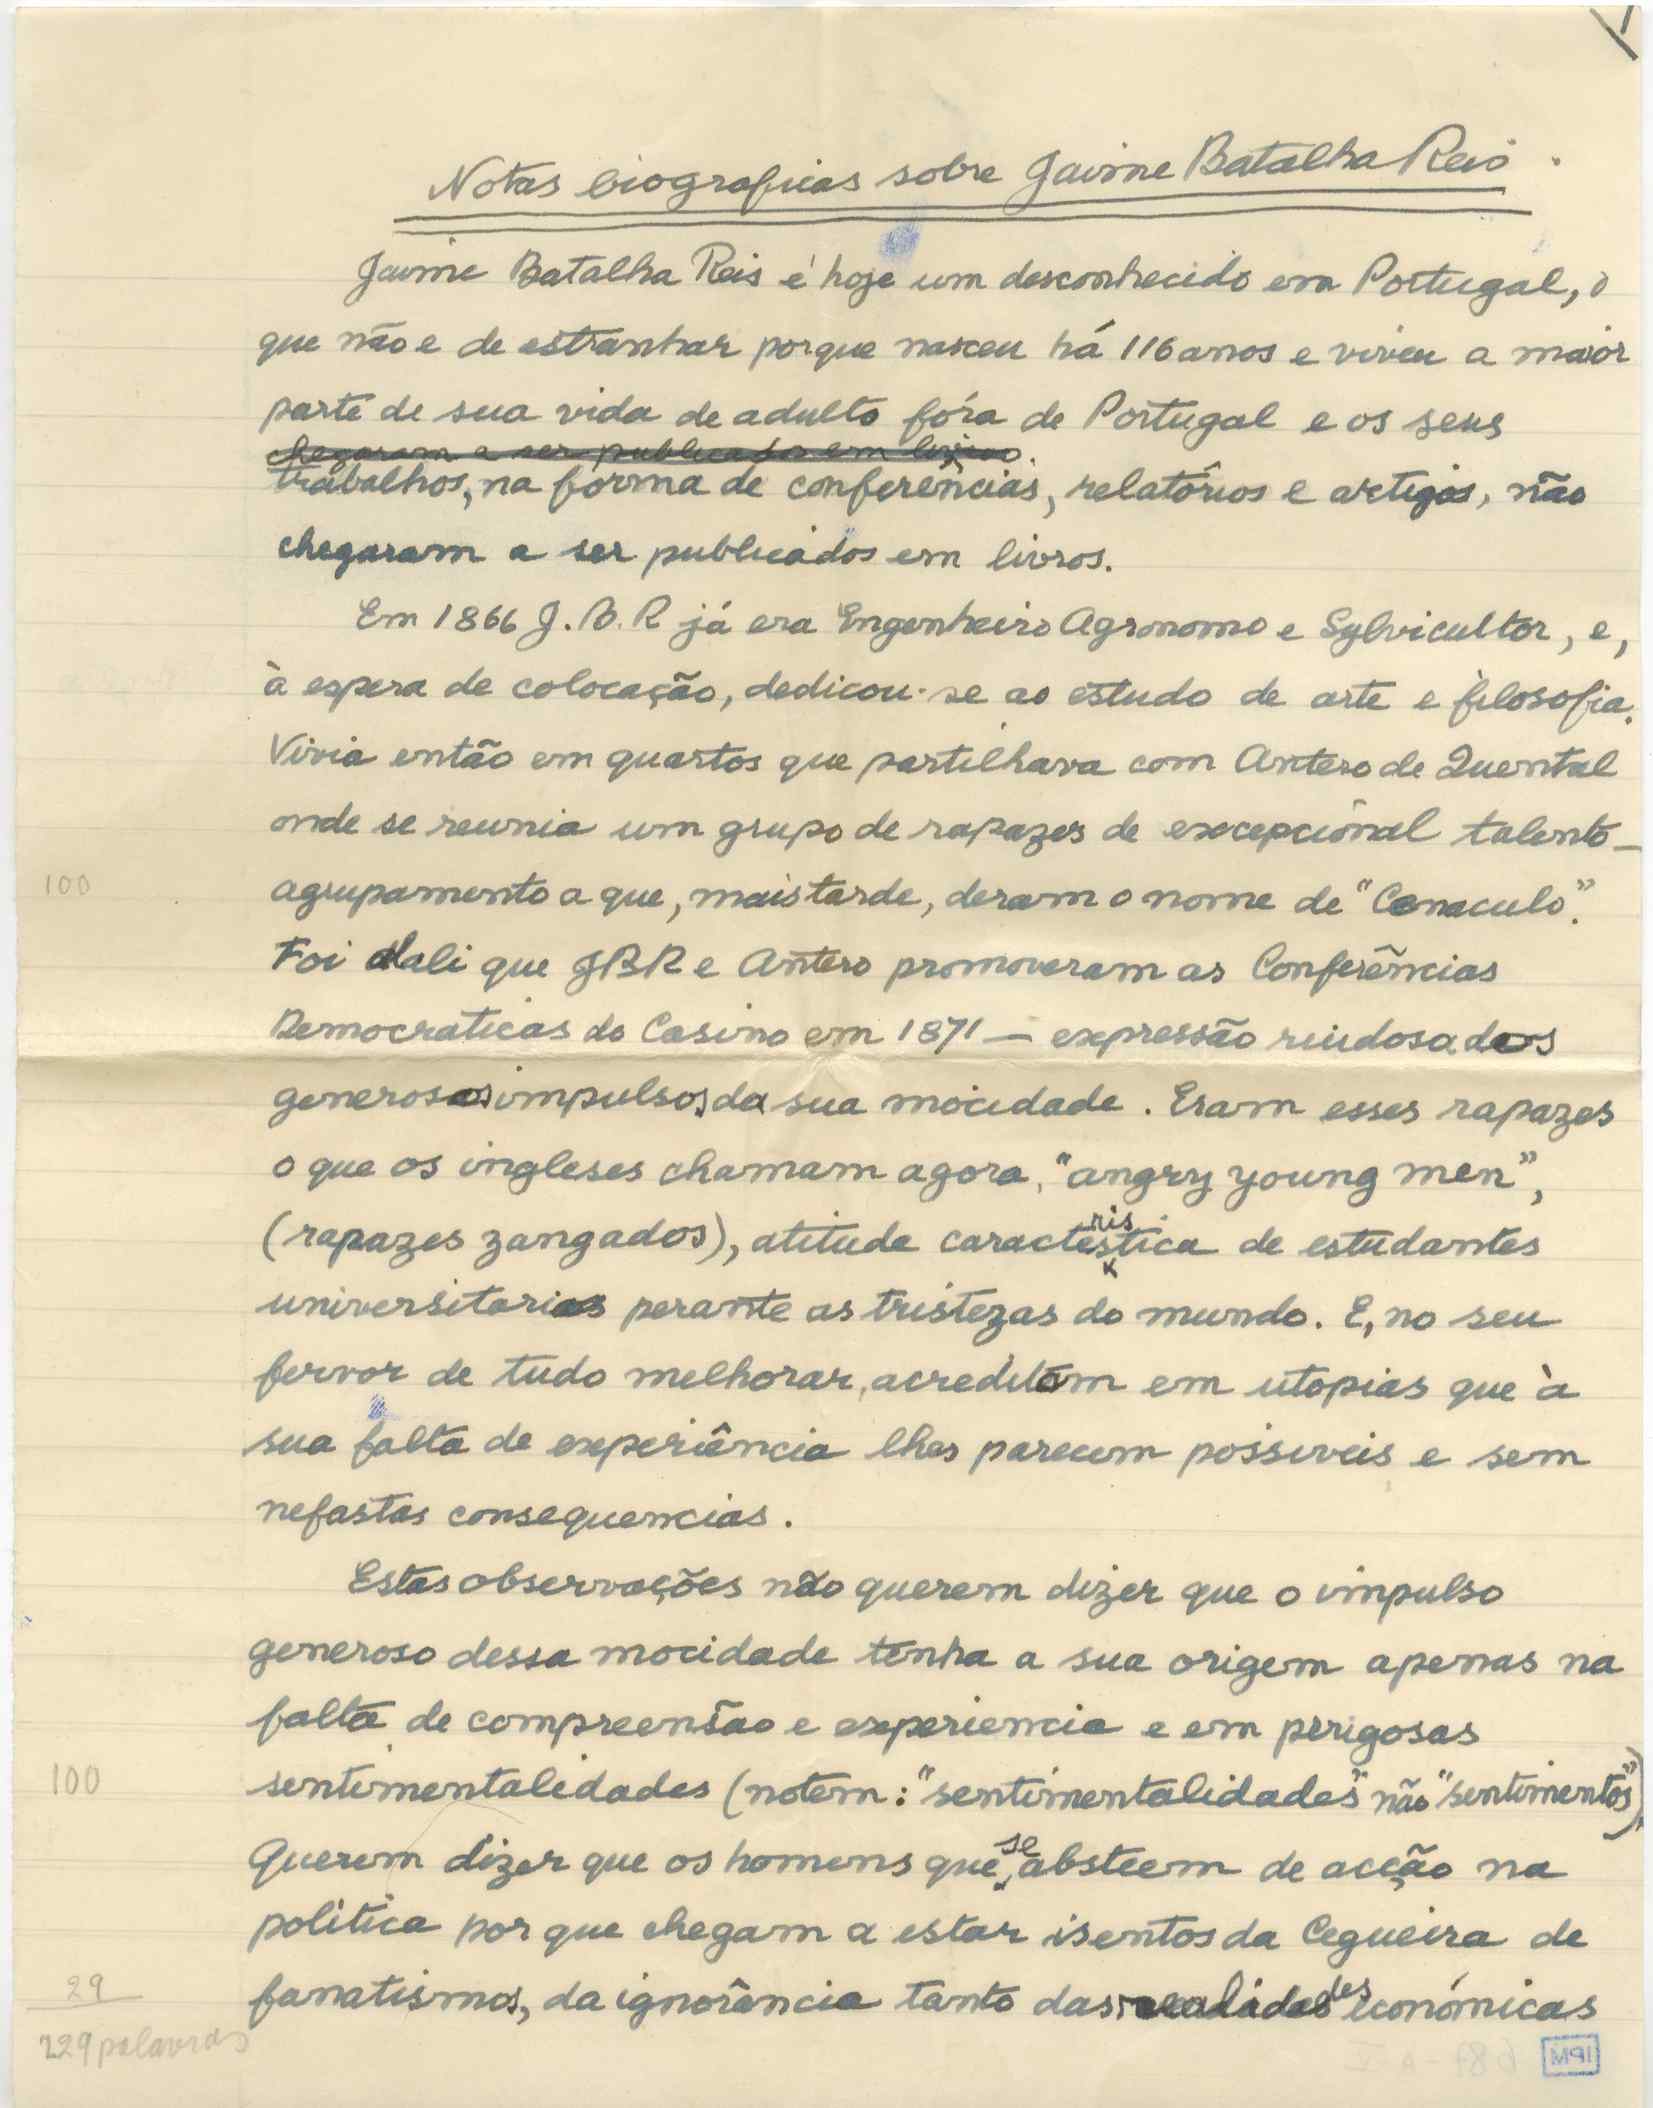 1
Notas biograficas sobre Jaime Batalha Reis.
Jaime Batalha Reis é hoje um desconhecido em Portugal, o
que não e de estranhar porque nasceu há 116 anos e viveu a maior
parte de sua vida de adulto fóra de Portugal e os seus
chegaram a ser publicados em livros.
trabalhos, na forma de conferências, relatórios e artigos, não
chegaram a ser publicados em livros.
Em 1866 J.B.R já era Engenheiro Agronomo e Sylvicultor, e,
à espera de colocação, dedicou-se ao estudo de arte e filosofia.
Vivia então em quartos que partilhava com Antero de Quental
onde se reunia um grupo de rapazes de excepcional talento —
100
agrupamento a que, mais tarde, deram o nome de "Cenaculo".
Foi dali que JBR e Antero promoveram as Conferências
Democraticas do Casino em 1871 — expressão ruidosa dos
generosos impulsos da sua mocidade. Eram esses rapazes
o que os ingleses chamam agora, "angry young men",
(rapazes zangados), atitude caracterisstica de estudantes
universitarios perante as tristezas do mundo. E, no seu
fervor de tudo melhorar, acreditam em utopias que à
sua falta de experiência lhes parecem possiveis e sem
nefastas consequencias.
Estas observações não querem dizer que o impulso
generoso dessa mocidade tenha a sua origem apenas na
falta de compreensão e experiencia e em perigosas
100
sentimentalidades (notem: "sentimentalidades" não "sentimentos").
Querem dizer que os homens que se absteem de acção na
politica por que chegam a estar isentos da Cegueira de
29
fanatismos, da ignorância tanto das realidades económicas
229 palavras
IPM